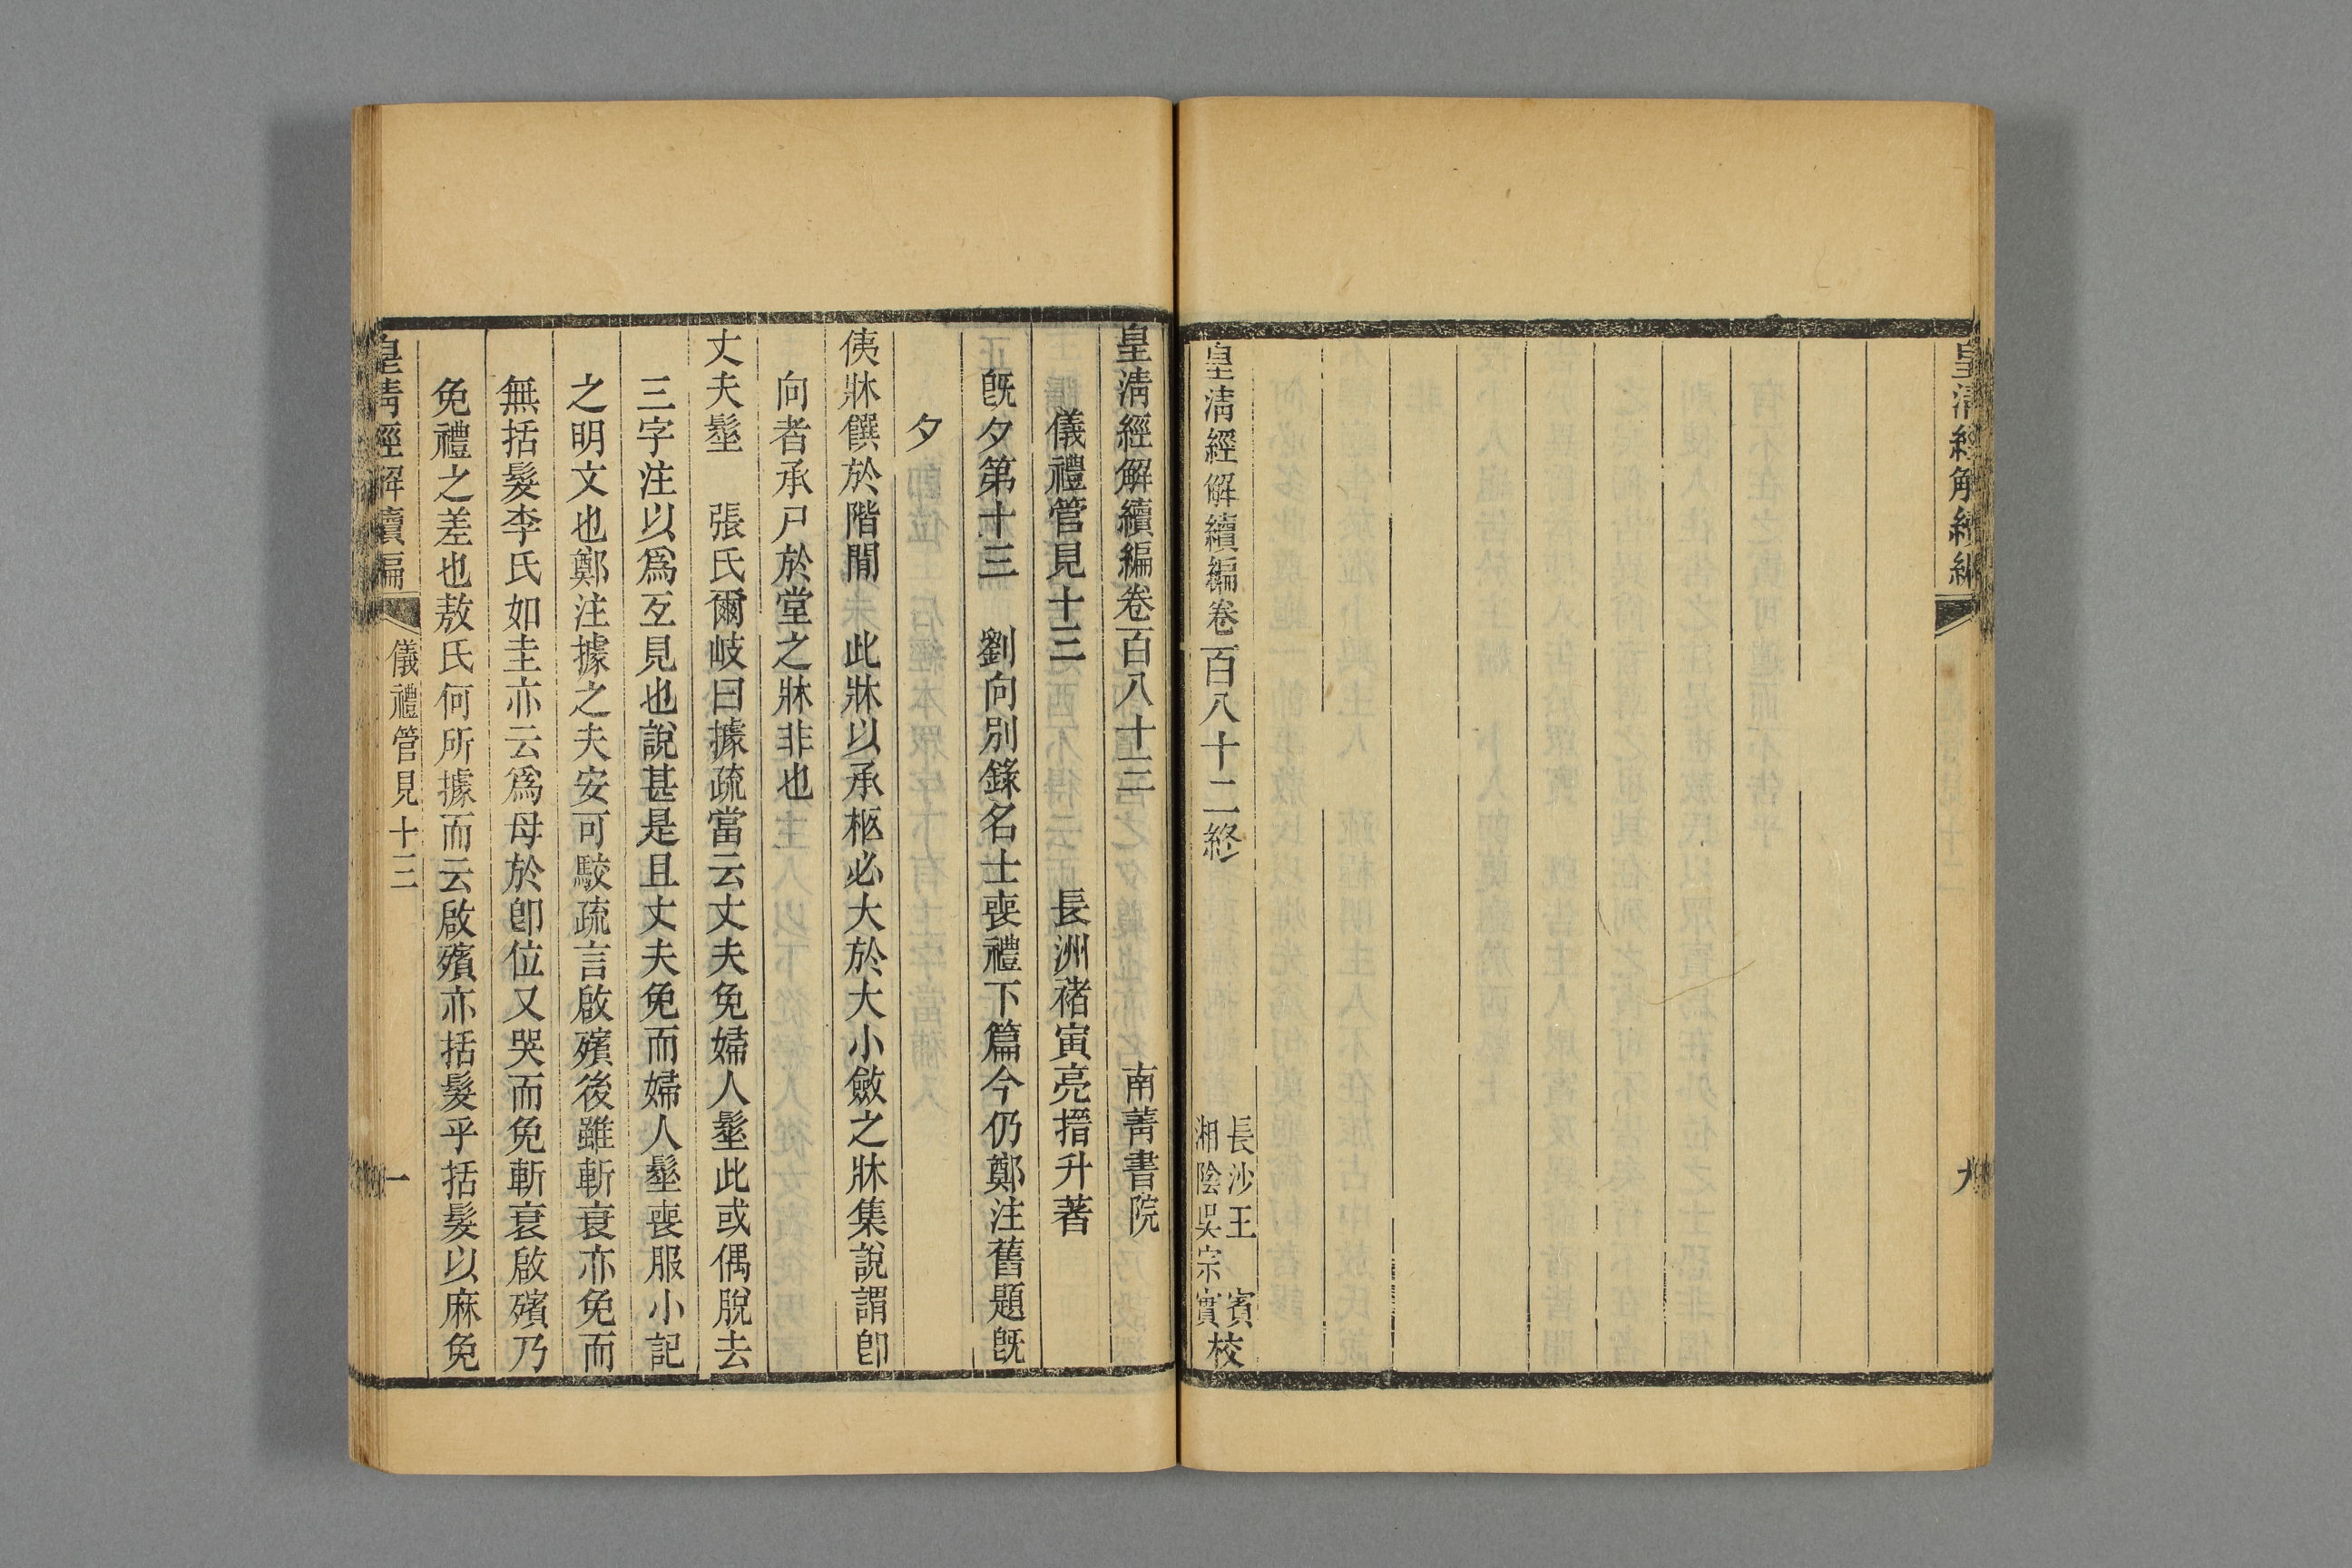 皇清經解續編
九
皇清經解續編卷一百八十二終
長沙王 賓
湘陰吳宗實
校
皇清經解續編卷一百八十三 南菁書院
儀禮管見十三 長洲褚寅亮搢升著
旣夕第十三 劉向別錄名士喪禮下篇今仍鄭注舊題旣
夕
侇牀饌於階閒 此牀以承柩必大於大小斂之牀集說謂卽
向者承尸於堂之牀非也
丈夫髽 張氏爾岐曰據疏當云丈夫免婦人髽此或偶脫去
三字注以爲互見也說甚是且丈夫免而婦人髽喪服小記
之明文也鄭注據之夫安可駮疏言啟殯後雖斬衰亦免而
無括髮李氏如圭亦云爲母於卽位又哭而免斬衰啟殯乃
免禮之差也敖氏何所據而云啟殯亦括髮乎括髮以麻免
皇清經解續編 儀禮管見十三 一